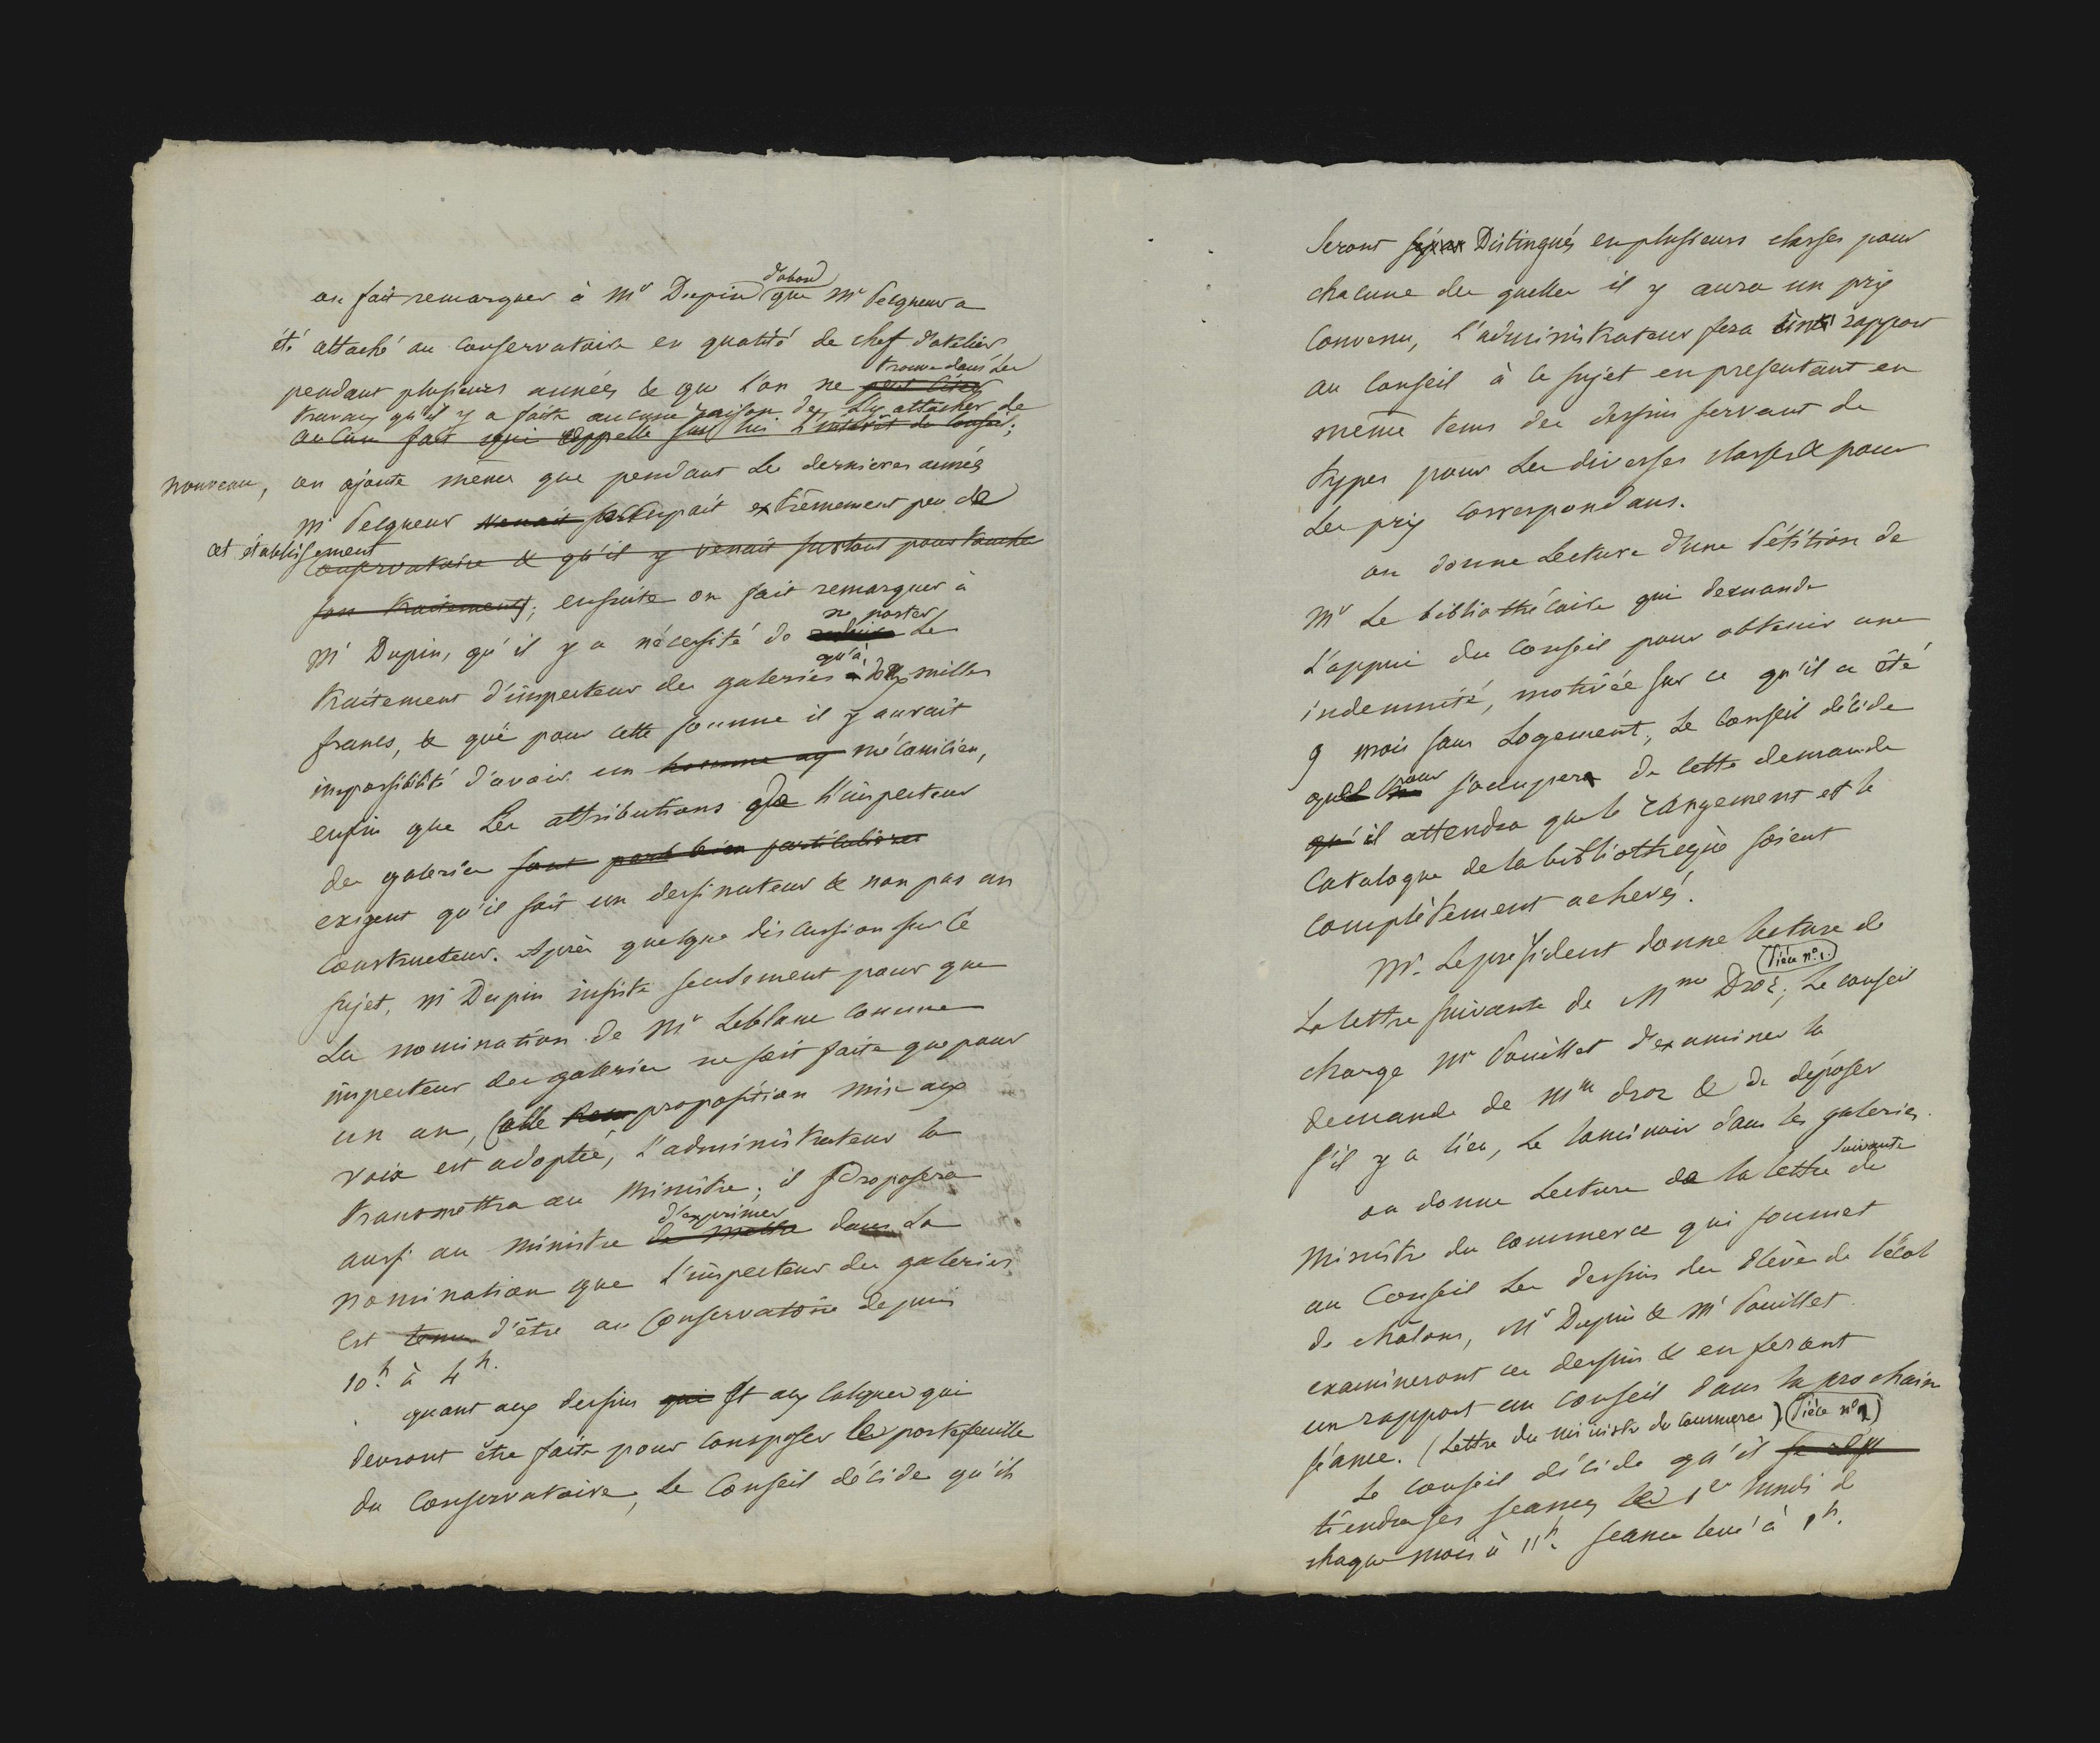 on fait remarquer à Mr Dupin d'abord que Mr Pecqueur a
été attaché au Conservatoire en qualité de chef d'atelier
pendant plusieurs années & que l'on ne peut citer trouve dans les
travaux qu'il y a faits aucune raison de s'y attacher de
aucun fait qui appelle sur lui l'intérêt du Conseil;
nouveau, on ajoute même que pendant les dernieres années
Mr Pecqueur venait s'occupait extrêmement peu de
cet établissement
Conservatoire & qu'il y venait surtout pour toucher
son traitement; ensuite on fait remarquer à
Mr Dupin, qu'il y a nécessité de réduire ne porter le
traitement d'inspecteur des galeries qu'à deux mille
francs, & que pour cette somme il y aurait
impossibilité d'avoir un homme mécanicien,
enfin que les attributions de l'inspecteur
des galeries sont particulières
exigent qu'il soit un dessinateur & non pas un
Constructeur. Après quelque discussion sur ce
sujet, Mr Dupin insiste seulement pour que
la nomination de Mr Leblanc comme
inspecteur des galeries ne soit faite que pour
un an, cette proposition mise aux
voix est adoptée, l'administrateur la
transmettra au Ministre; il proposera
aussi au ministre de mettre d'exprimer dans la
nomination que l'inspecteur des galeries
est tenu d'être au Conservatoire depuis
10h. à 4h.
quant aux dessins qui et aux calques qui
devront être faits pour composer le portefeuille
du Conservatoire, le Conseil décide qu'ils
Seront Distingués en plusieurs classes pour
chacune des quelles il y aura un prix
Convenu, l'administrateur fera un rapport
au Conseil à ce sujet en présentant en
même tems des dessins servant de
types pour les diverses classes & pour
les prix correspondans.
on donne lecture d'une Pétition de
Mr le bibliothécaire qui demande
l'appui du Conseil pour obtenir une
indemnité, motivée sur ce qu'il a été
9 mois sans logement, le Conseil décide
que pour s'occuper de cette demande
qu'il attendra que le rangement et le
Catalogue de la bibliothèque soient
complètement achevés.
Mr. le président donne lecture de
la lettre suivante de Mme Droz; (Pièce n° 1.) le conseil
charge Mr Pouillet d'examiner la
demande de Mme droz & de déposer
s'il y a lieu, le laminoir dans les galeries.
on donne lecture de la lettre suivante du
Ministre du commerce qui soumet
au Conseil les dessins des élèves de l'école
de châlons, Mr Dupin & Mr Pouillet
examineront ces dessins & en feront
un rapport au conseil dans la prochaine
séance. (Lettre du ministre du Commerce) (Pièce n° 2)
Le conseil décide qu'il
tiendra ses séances le 1er lundi de
chaque mois à 11h. séance levée à 1h.